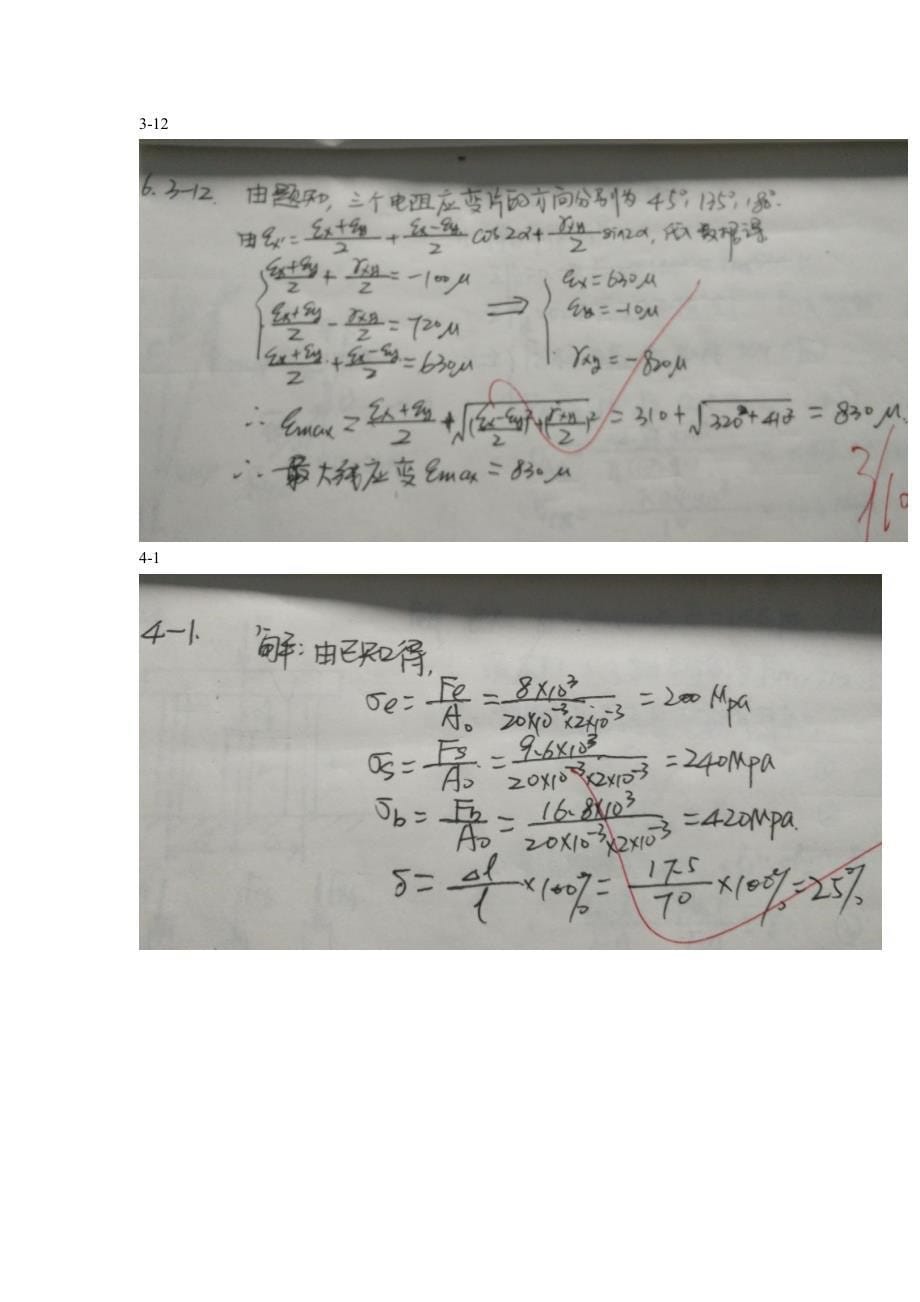 3-12
6. 3-12. 由题知, 三个电阻应变片的方向分别为 45°, 135°, 180°.
由 εx' = (εx+εy)/2 + (εx-εy)/2 cos2α + γxy/2 sin2α, 代入数据得
(εx+εy)/2 + γxy/2 = -100μ
(εx+εy)/2 - γxy/2 = 720μ ⇒ εx = 630μ
(εx+εy)/2 + (εx-εy)/2 = 630μ
εy = -10μ
γxy = -820μ
∴ εmax = (εx+εy)/2 + √(((εx-εy)/2)²+(γxy/2)²) = 310 + √(320²+410²) = 830μ.
∴ 最大线应变 εmax = 830μ
4-1
4-1. 解: 由已知得,
σe = Fe/A₀ = 8×10³/(20×10⁻³×2×10⁻³) = 200Mpa
σs = Fs/A₀ = 9.6×10³/(20×10⁻³×2×10⁻³) = 240Mpa
σb = Fb/A₀ = 16.8×10³/(20×10⁻³×2×10⁻³) = 420Mpa.
δ = Δl/l ×100% = 17.5/70 ×100% = 25%